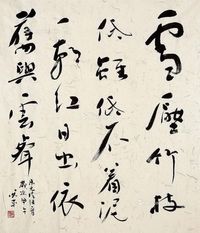 雪壓竹枝
低雖低不着泥
一朝紅日出依
舊與雲齊